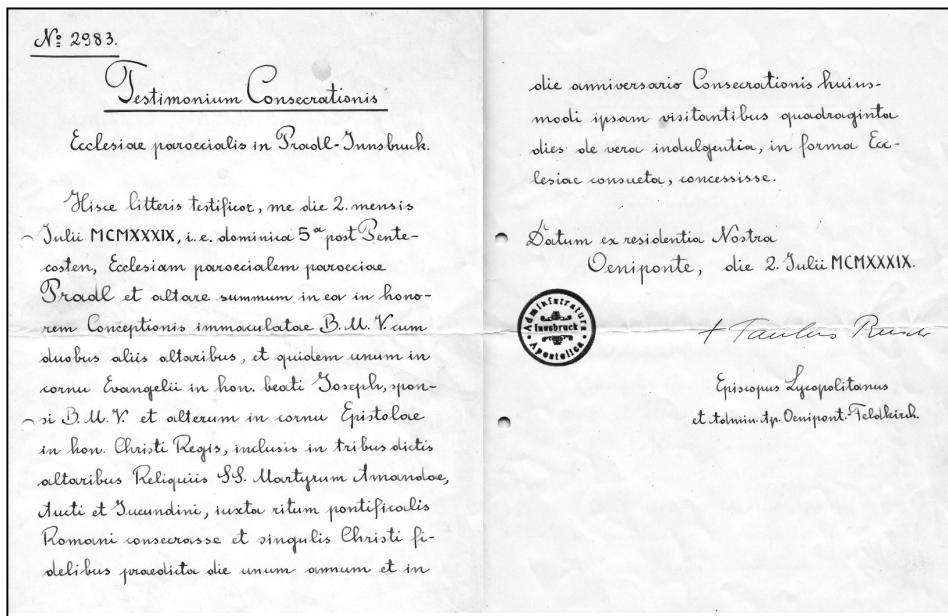 № 2983.
Testimonium Consecrationis
Ecclesiae paroecialis in Pradl-Innsbruck.
Hisce litteris testificor, me die 2. mensis
Julii MCMXXXIX, i.e. dominica 5ª post Pente-
costen, Ecclesiam paroecialem paroeciae
Pradl et altare summum in ea in hono-
rem Conceptionis immaculatae B.M.V. cum
duobus aliis altaribus, et quidem unum in
cornu Evangelii in hon. beati Joseph, spon-
si B.M.V. et alterum in cornu Epistolae
in hon. Christi Regis, inclusis in tribus dictis
altaribus Reliquiis SS. Martyrum Amandae,
Aucti et Jucundini, iuxta ritum pontificalis
Romani consecrasse et singulis Christi fi-
delibus praedicta die unum annum et in
die anniversario Consecrationis huius-
modi ipsam visitantibus quadraginta
dies de vera indulgentia, in forma Ecc-
lesiae consueta, concessisse.
Datum ex residentia Nostra
Oeniponte, die 2. Julii MCMXXXIX.
Administratura
Innsbruck
Apostolica
+ Paulus Rusch
Episcopus Lycopolitanus
et Admin. Ap. Oenipont.-Feldkirch.